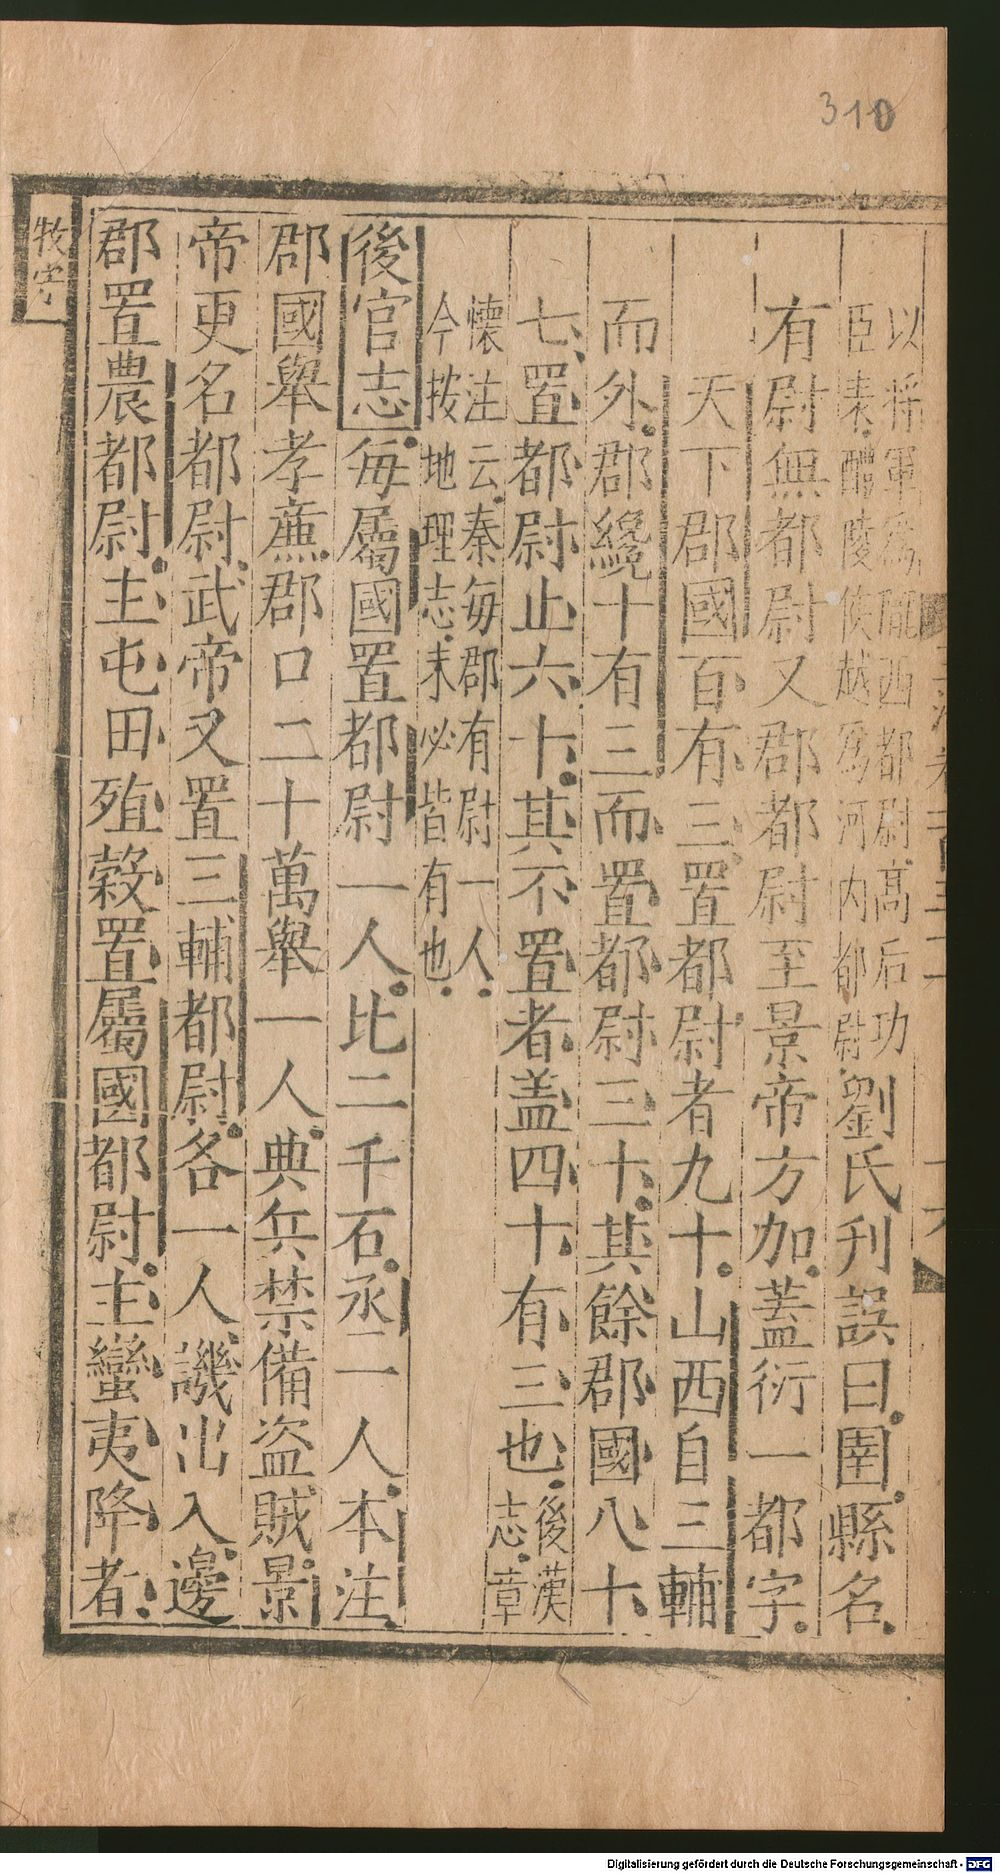 310
以將軍為隴西都尉髙后功
臣表醴陵侯越為河内都尉劉氏刊誤曰圉縣名
有尉無都尉又郡都尉至景帝方加蓋衍一都字
天下郡國百有三置都尉者九十山西自三輔
而外郡纔十有三而置都尉三十其餘郡國八十
七置都尉止六十其不置者盖四十有三也後漢
志章
懷注云秦每郡有尉一人
今按地理志未必皆有也
後官志每屬國置都尉一人比二千石丞一人本注
郡國舉孝廉郡口二十萬舉一人典兵禁備盗賊景
帝更名都尉武帝又置三輔都尉各一人譏出入邊
郡置農都尉主屯田殖榖置屬國都尉主蠻夷降者
牧守
Digitalisierung gefördert durch die Deutsche Forschungsgemeinschaft - DFG